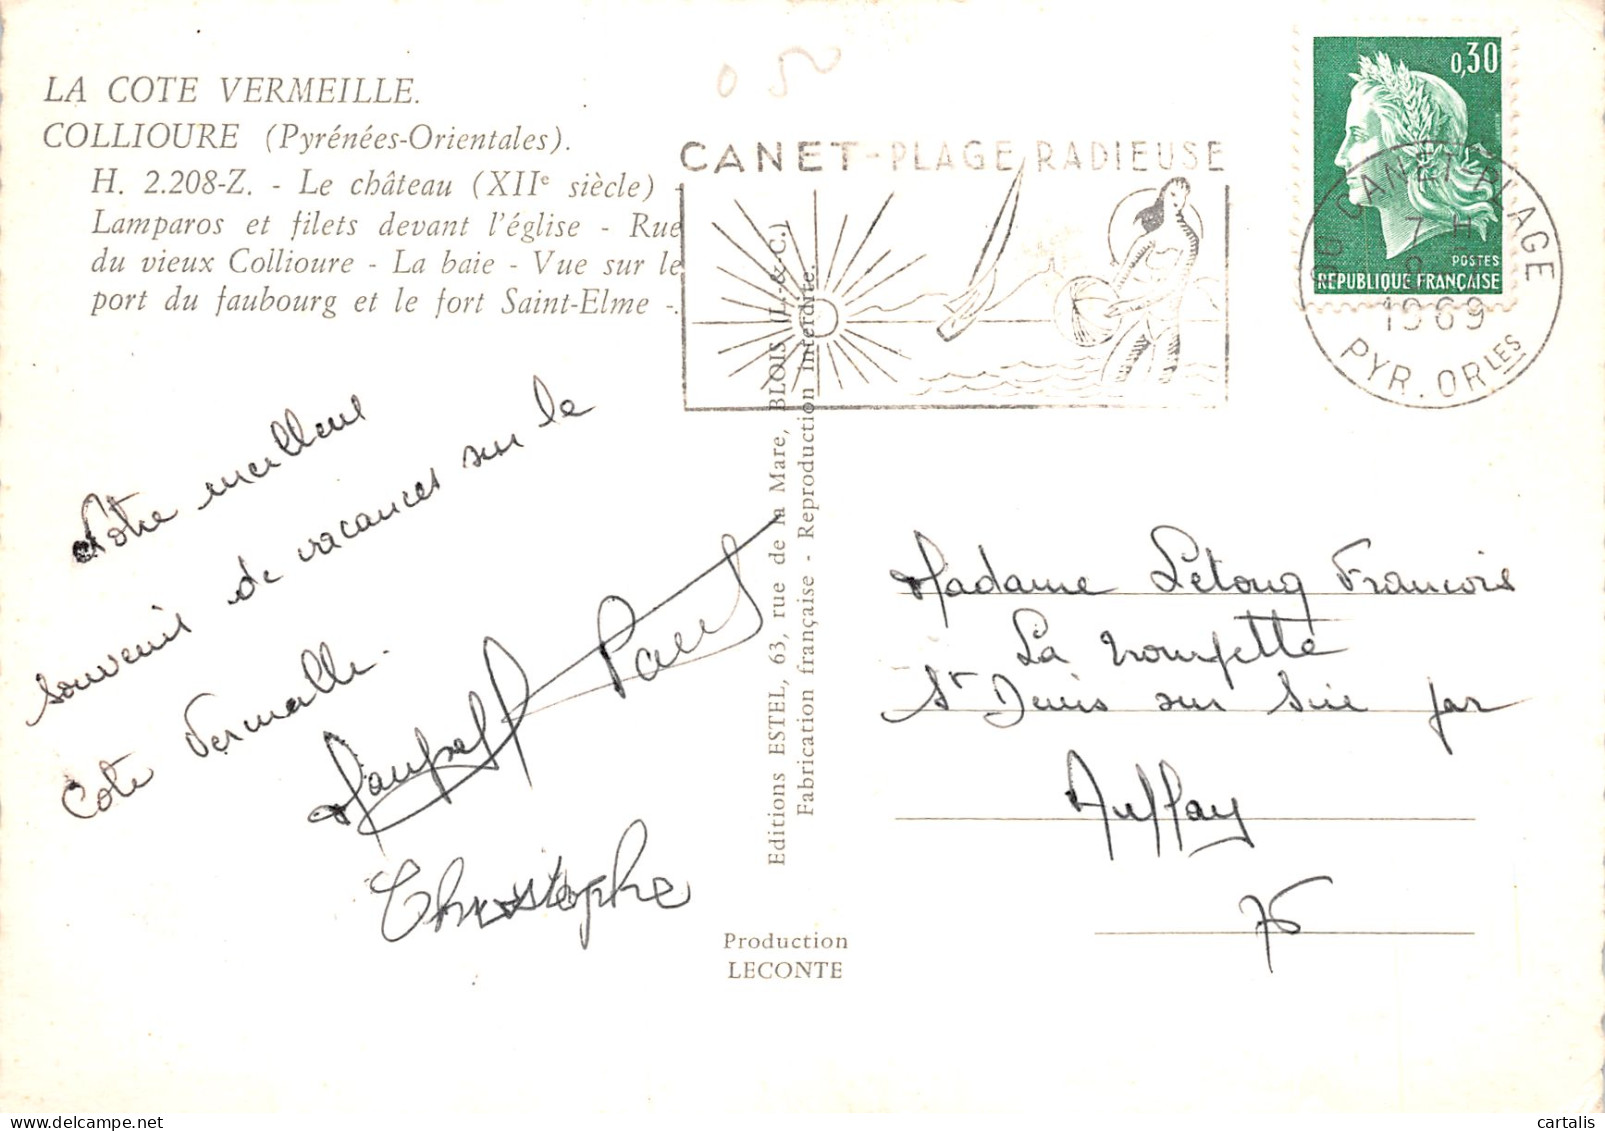 LA COTE VERMEILLE.
COLLIOURE (Pyrénées-Orientales).
H. 2.208-Z. - Le château (XIIe siècle) -
Lamparos et filets devant l'église - Rue
du vieux Collioure - La baie - Vue sur le
port du faubourg et le fort Saint-Elme -.
CANET-PLAGE RADIEUSE
0,30
POSTES
REPUBLIQUE FRANÇAISE
CANET PLAGE
7 H
1969
PYR. ORLES
Notre meilleur
souvenir de vacances sur la
Cote Vermeille.
Paul
Christophe
Editions ESTEL, 63, rue de la Mare, BLOIS (L.-&-C.)
Fabrication française - Reproduction interdite.
Production
LECONTE
Madame Letoug Francois
La
St Denis sur Sie par
Auffay
76
cartalis